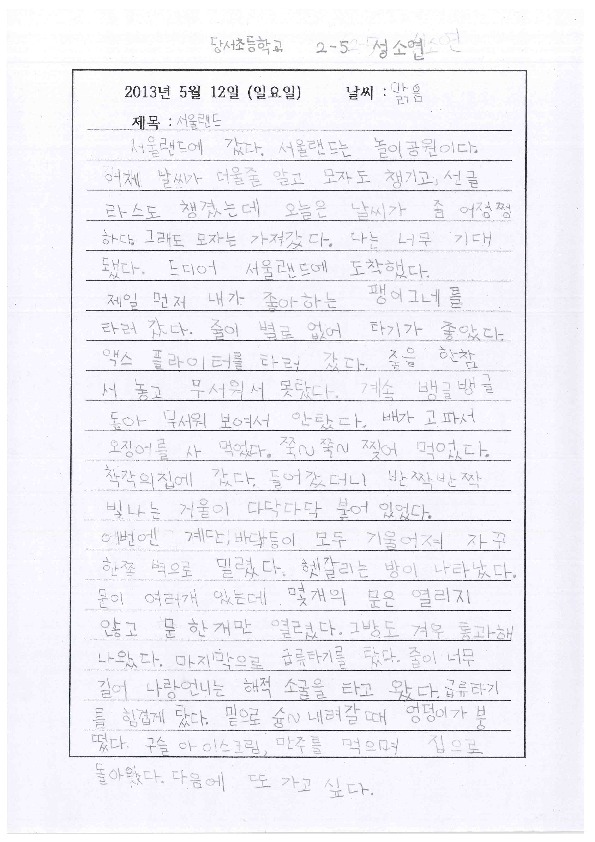 당서초등학교 2-5 성소연
2013년 5월 12일 (일요일) 날씨 : 맑음
제목 : 서울랜드
서울랜드에 갔다. 서울랜드는 놀이공원이다.
어제 날씨가 더울줄 알고 모자도 챙기고, 선글
라스도 챙겼는데 오늘은 날씨가 좀 어정쩡
하다. 그래도 모자는 가져갔다. 나는 너무 기대
됐다. 드디어 서울랜드에 도착했다.
제일 먼저 내가 좋아하는 팽이그네를
타러 갔다. 줄이 별로 없어 타기가 좋았다.
엑스 플라이터를 타러 갔다. 줄을 한참
서 놓고 무서워서 못탔다. 계속 뱅글뱅글
돌아 무서워 보여서 안탔다. 배가 고파서
오징어를 사 먹었다. 쭉~쭉~ 찢어 먹었다.
착각의집에 갔다. 들어갔더니 반짝반짝
빛나는 거울이 다닥다닥 붙어 있었다.
이번엔 계단, 바닥등이 모두 기울어져 자꾸
한쪽 벽으로 밀렸다. 헷갈리는 방이 나타났다.
문이 여러개 있는데 몇개의 문은 열리지
않고 문 한개만 열렸다. 그방도 겨우 통과해
나왔다. 마지막으로 급류타기를 탔다. 줄이 너무
길어 나랑언니는 해적 소굴을 타고 왔다. 급류타기
를 힘겹게 탔다. 밑으로 슝~ 내려갈때 엉덩이가 붕
떴다. 구슬 아이스크림, 만주를 먹으며 집으로
돌아왔다. 다음에 또 가고 싶다.